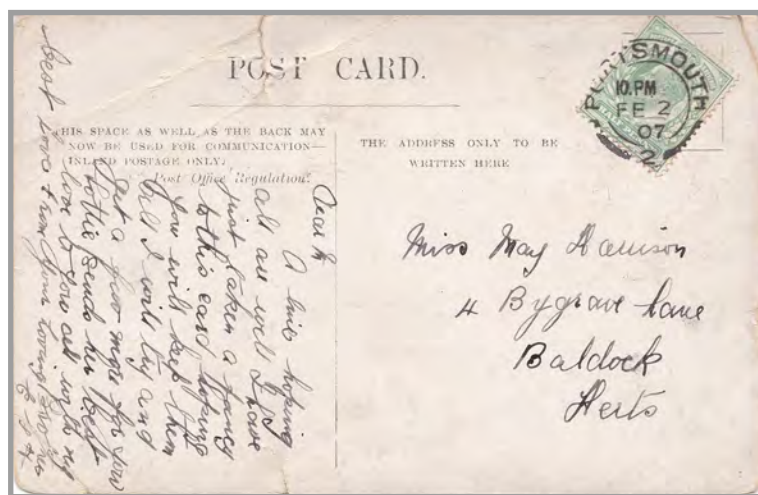 POST CARD.
THIS SPACE AS WELL AS THE BACK MAY
NOW BE USED FOR COMMUNICATION—
INLAND POSTAGE ONLY.
Post Office Regulation.
THE ADDRESS ONLY TO BE
WRITTEN HERE
PORTSMOUTH
10.PM
FE 2
07
2
Dear M
A line hoping
all are well I have
just taken a fancy
to this card hoping
you will keep them
till I will try and
get a few more for you
Lottie sends her best
love to you all with my
best love from your loving
Miss May Harrison
4 Bygrave Lane
Baldock
Herts